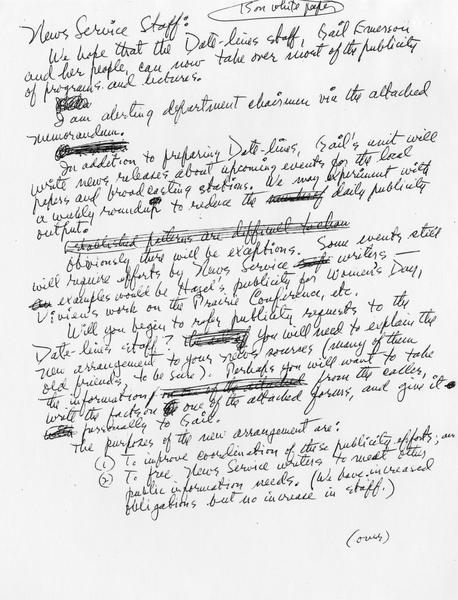 15 on white paper
News Service Staff:
We hope that the Date-lines staff, Gail Emerson
and her people, can now take over most of the publicity
of programs and lectures.
I am alerting department chairmen via the attached
memorandum.
In addition to preparing Date-lines, Gail's unit will
write news releases about upcoming events for the local
papers and broadcasting stations. We may experiment with
a weekly roundup to reduce the daily publicity
output.
Established patterns are difficult to change
Obviously there will be exceptions. Some events still
will require efforts by News Service writers —
examples would be Hazel's publicity for Women's Day,
Vivien's work on the Prairie Conference, etc.
Will you begin to refer publicity requests to the
Date-lines staff? You will need to explain the
new arrangement to your news sources (many of them
old friends, to be sure). Perhaps you will want to take
the information from the caller,
write the facts on one of the attached forms, and give it
personally to Gail.
The purposes of the new arrangement are:
(1) To improve coordination of these publicity efforts; and
(2) To free News Service writers to meet other
public information needs. (We have increased
obligations but no increase in staff.)
(over)